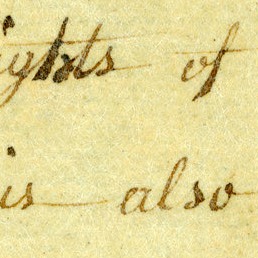 ights of
is also